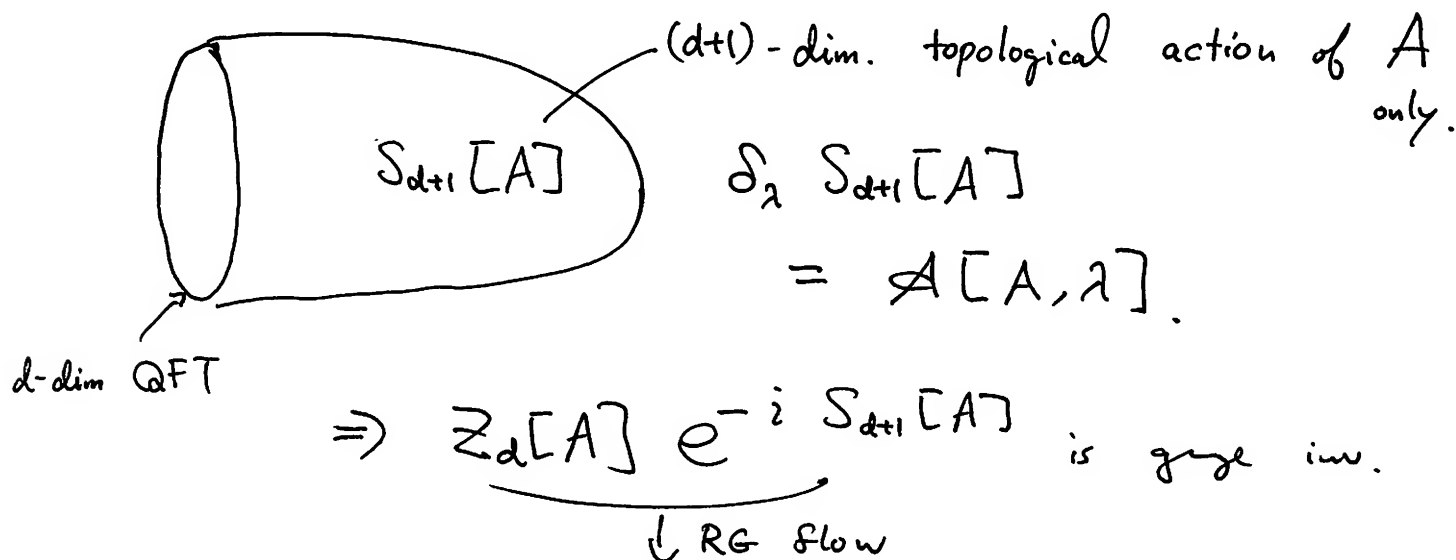 (d+1)-dim. topological action of A
only.
S_{d+1}[A] δ_λ S_{d+1}[A]
= 𝒜[A, λ].
d-dim QFT
⇒ Z_d[A] e^{-i S_{d+1}[A]} is gauge inv.
↓ RG flow